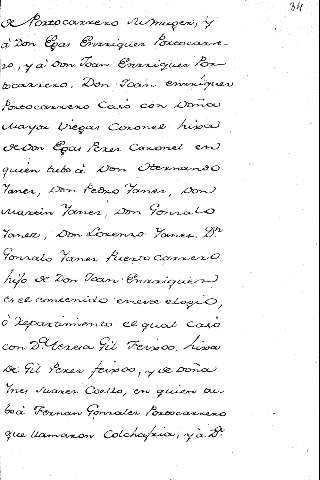 34
de Portocarrero su muger, y
á Don Egas Enrriquez Portocarre-
ro, y á Don Joan Enrriquez Por-
tocarrero. Don Joan enrriquez
Portocarrero Casó con Doña
Mayor Viegas Coronel hixa
de Don Egas Perez Coronel en
quien tubo á Don Hernando
Yanez, Don Pedro Yanez, Don
Martin Yanez, Don Gonzalo
Yanez, Don Lorenzo Yanez. Dn
Gonzalo Yanez Puertocarrero
hijo de Don Joan Enrriquez
es el contenido en este elogio,
ó Repartimiento el qual Casó
con Da. Teresa Gil Feixoo, hixa
de Gil Perez feixoo, y de Doña
Ynes Juarez Coello, en quien tu-
bo á Fernan Gonzalez Portocarrero
que llamaron Colchafria, y á Dn